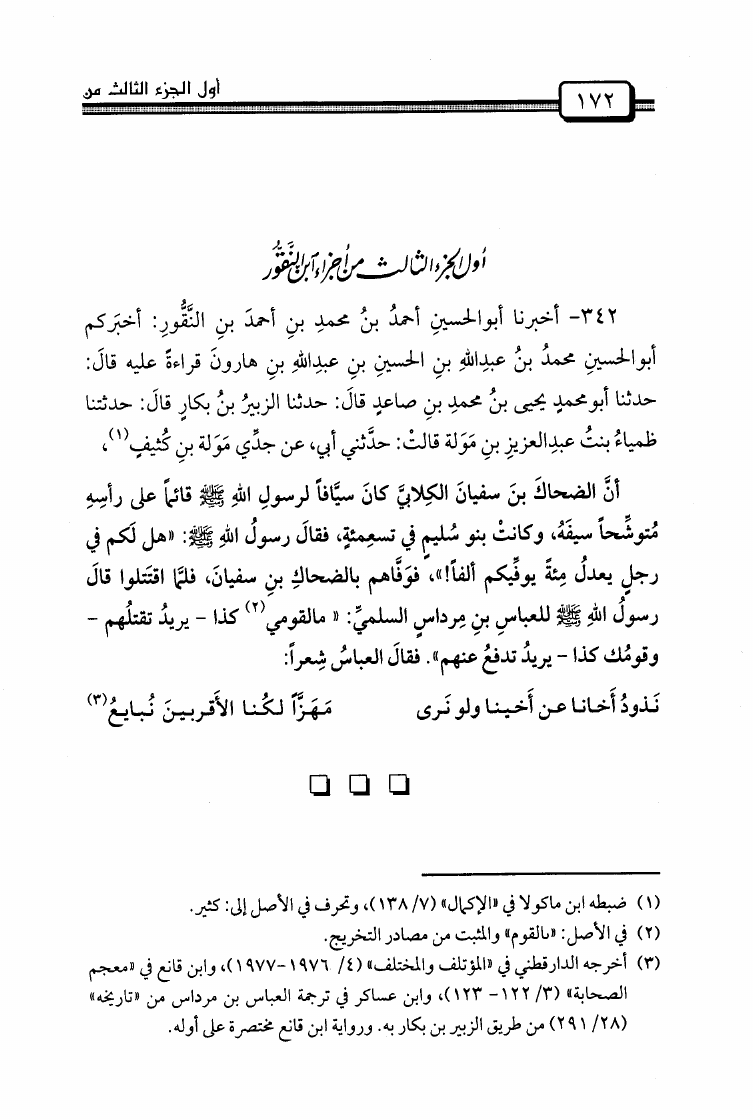 أول الجزء الثالث من
١٧٢
أول الجزء الثالث من أجزاء ابن النَّقُّور
٣٤٢- أخبرنا أبوالحسينِ أحمدُ بنُ محمدِ بنِ أحمدَ بنِ النَّقُّورِ: أخبَركم
أبوالحسينِ محمدُ بنُ عبدِاللهِ بنِ الحسينِ بنِ عبدِاللهِ بنِ هارونَ قراءةً عليه قالَ:
حدثنا أبومحمدٍ يحيى بنُ محمدِ بنِ صاعدٍ قالَ: حدثنا الزبيرُ بنُ بكارٍ قالَ: حدثتنا
ظمياءُ بنتُ عبدِالعزيزِ بنِ مَوَلة قالتْ: حدَّثني أبي، عن جدِّي مَوَلة بنِ كُثيفٍ(١)،
أنَّ الضحاكَ بنَ سفيانَ الكِلابيَّ كانَ سيَّافاً لرسولِ اللهِ ﷺ قائماً على رأسِهِ
مُتوشِّحاً سيفَهُ، وكانتْ بنو سُليمٍ في تسعِمئةٍ، فقالَ رسولُ اللهِ ﷺ: «هل لَكم في
رجلٍ يعدلُ مِئةً يوفِّيكم ألفاً!»، فوَفَّاهم بالضحاكِ بنِ سفيانَ، فلمَّا اقتَتلوا قالَ
رسولُ اللهِ ﷺ للعباسِ بنِ مِرداسٍ السلميِّ: « مالقومي(٢) كذا - يريدُ تقتلُهم -
وقومُك كذا - يريدُ تدفعُ عنهم». فقالَ العباسُ شِعراً:
نَذودُ أَخانا عن أَخينا ولو نَرى مَهَزَّاً لكُنا الأَقربينَ نُبايعُ(٣)
(١) ضبطه ابن ماكولا في «الإكمال» (٧/ ١٣٨)، وتحرف في الأصل إلى: كثير.
(٢) في الأصل: «بالقوم» والمثبت من مصادر التخريج.
(٣) أخرجه الدارقطني في «المؤتلف والمختلف» (٤/ ١٩٧٦-١٩٧٧)، وابن قانع في «معجم
الصحابة» (٣/ ١٢٢- ١٢٣)، وابن عساكر في ترجمة العباس بن مرداس من «تاريخه»
(٢٨/ ٢٩١) من طريق الزبير بن بكار به. ورواية ابن قانع مختصرة على أوله.